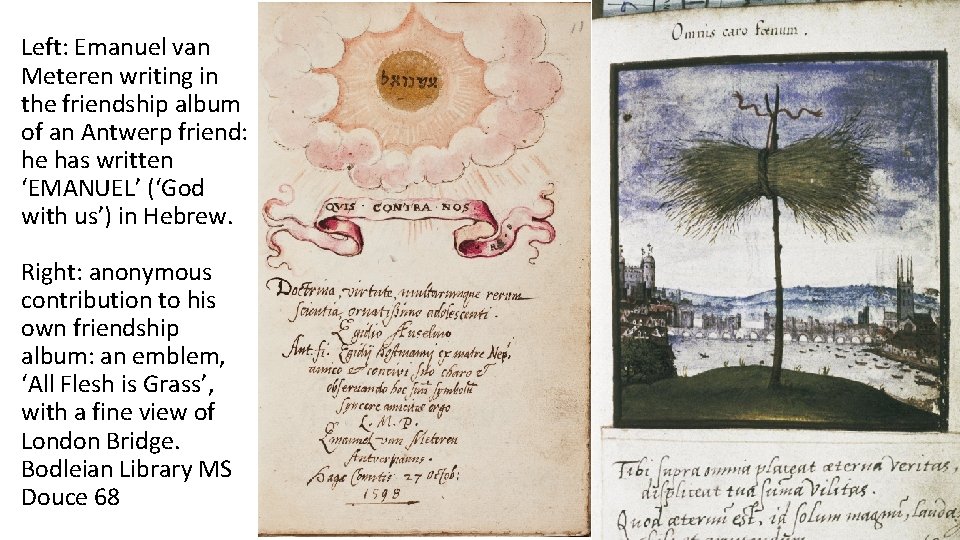 Left: Emanuel van
Meteren writing in
the friendship album
of an Antwerp friend:
he has written
‘EMANUEL’ (‘God
with us’) in Hebrew.
Right: anonymous
contribution to his
own friendship
album: an emblem,
‘All Flesh is Grass’,
with a fine view of
London Bridge.
Bodleian Library MS
Douce 68
11
QVIS · CONTRA · NOS
Doctrina, virtute, multarumque rerum
scientia, ornatissimo adolescenti.
Egidio Anselmo
Ant. fi. Egidij Hoftmanny ex matre Nep.
amico et
observando hoc symbolũ
syncere amicitiæ ergo
L. M. P.
Emanuel van Meteren
Antverpianus.
Hagæ Comitis 27 Octob:
1598
Omnis caro fœnum.
Tibi supra omnia placeat æterna Veritas,
displiceat tua suma Vilitas.
Quod æternũ est, id solum magnũ,